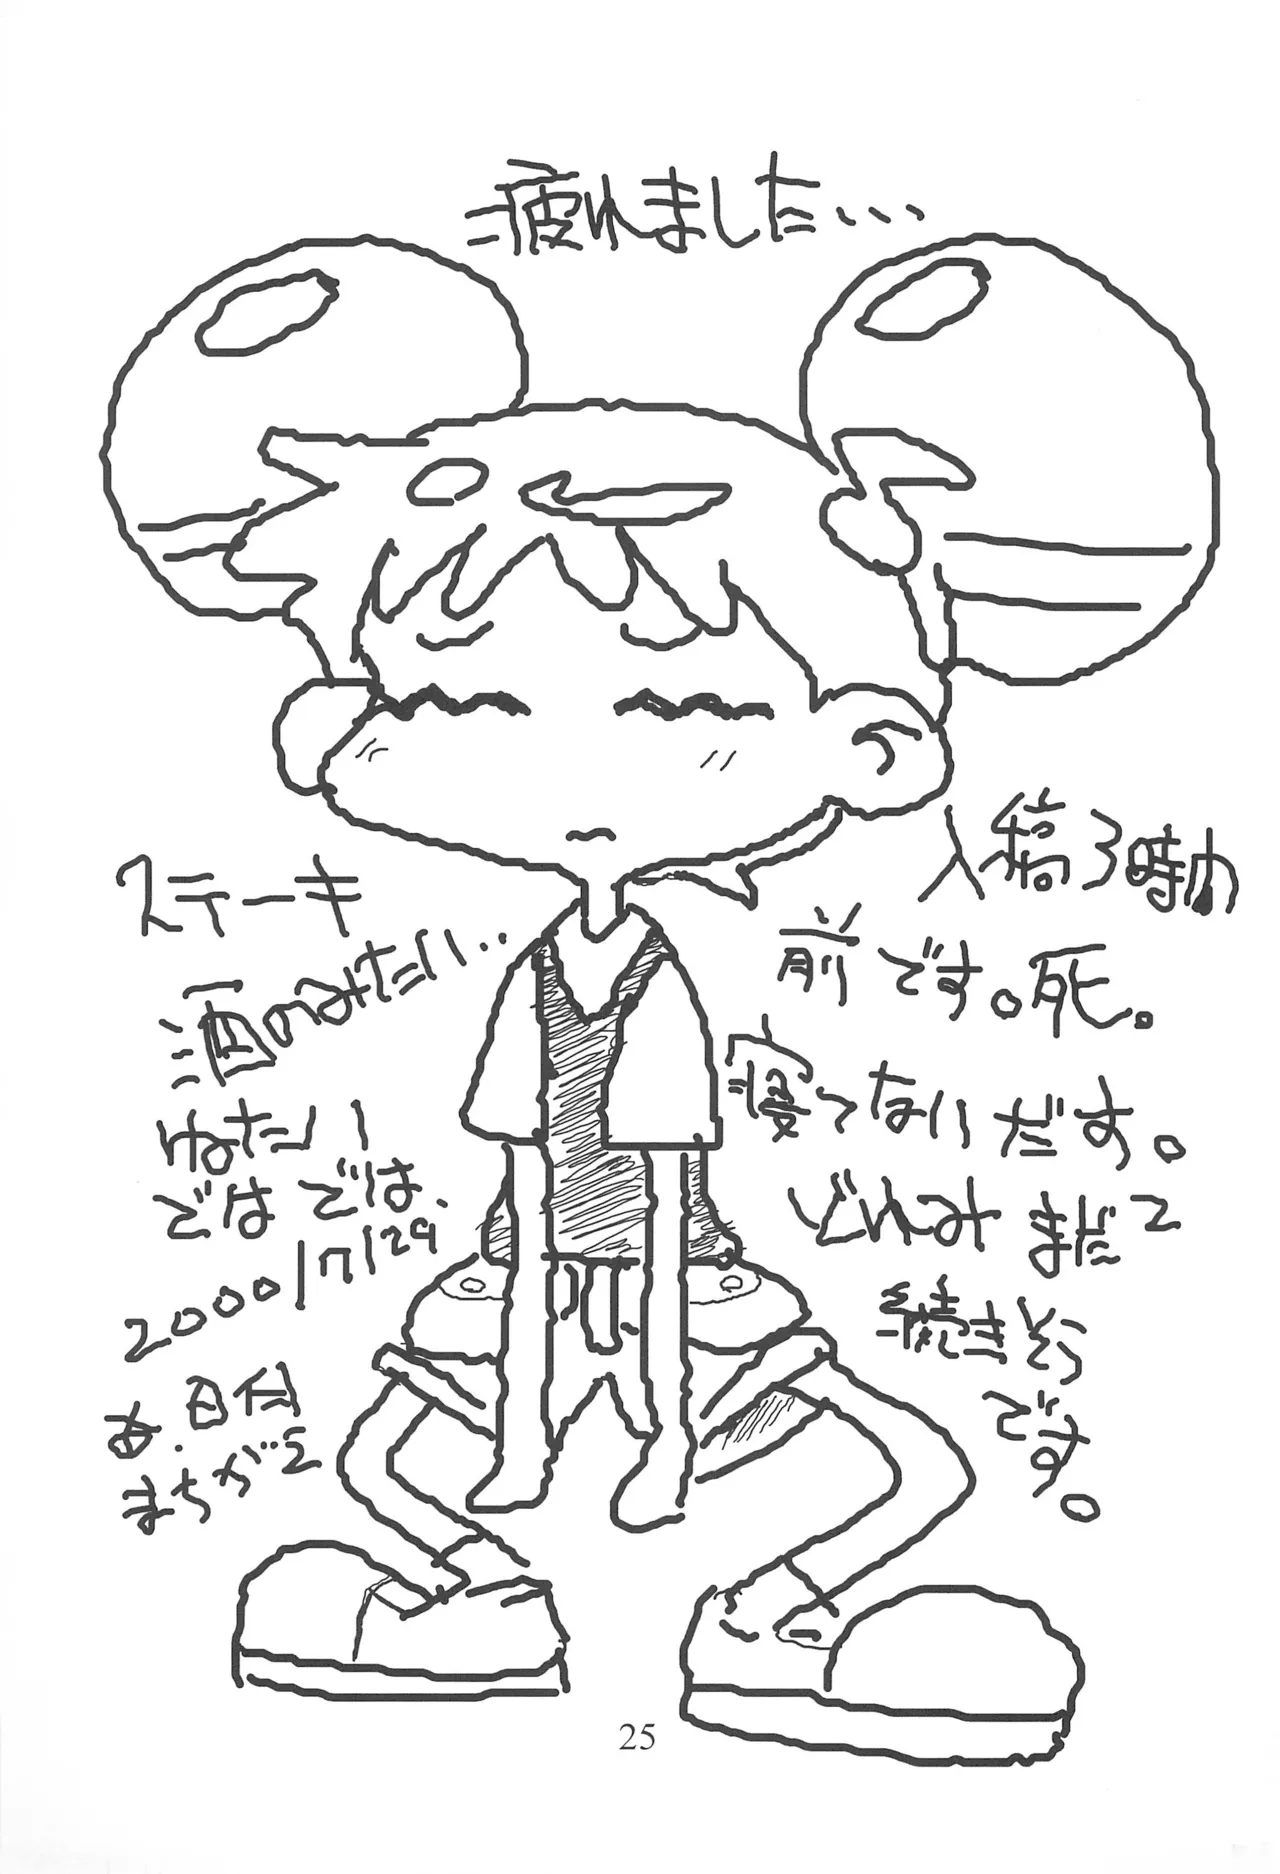 疲れました...
入稿3時間
前です。死。
寝てないだす。
どれみまだ
続きそう
です。
ステーキ
酒のみたい..
ねたい
ではでは、
2000
あ.日付
まちがえ
25